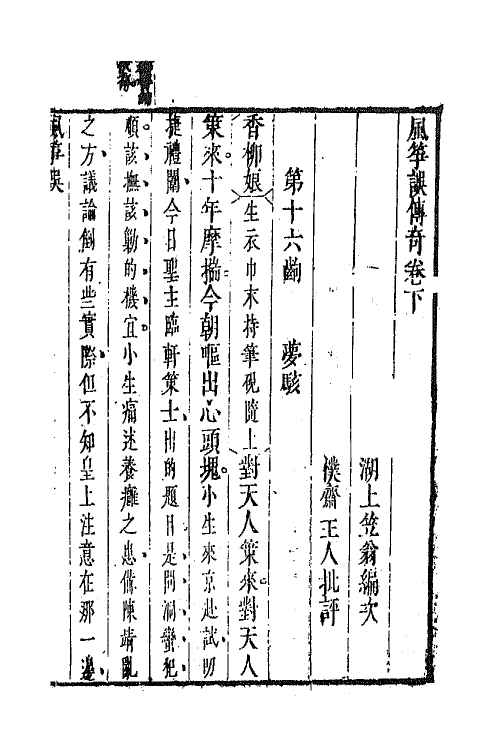 風箏誤傳奇卷下
湖上笠翁編次
樸齋主人批評
第十六齣　夢駭
香柳娘生衣巾末持筆硯隨上對天人策來對天人
策來十年摩揣今朝嘔出心頭塊小生來京赴試叨
捷禮闈今日聖主臨軒策士出的題目是問洞蠻犯
順該撫該勦的機宜小生痛述養癰之患備陳靖亂
之方議論倒有些實際但不知皇上注意在那一邊
風箏誤